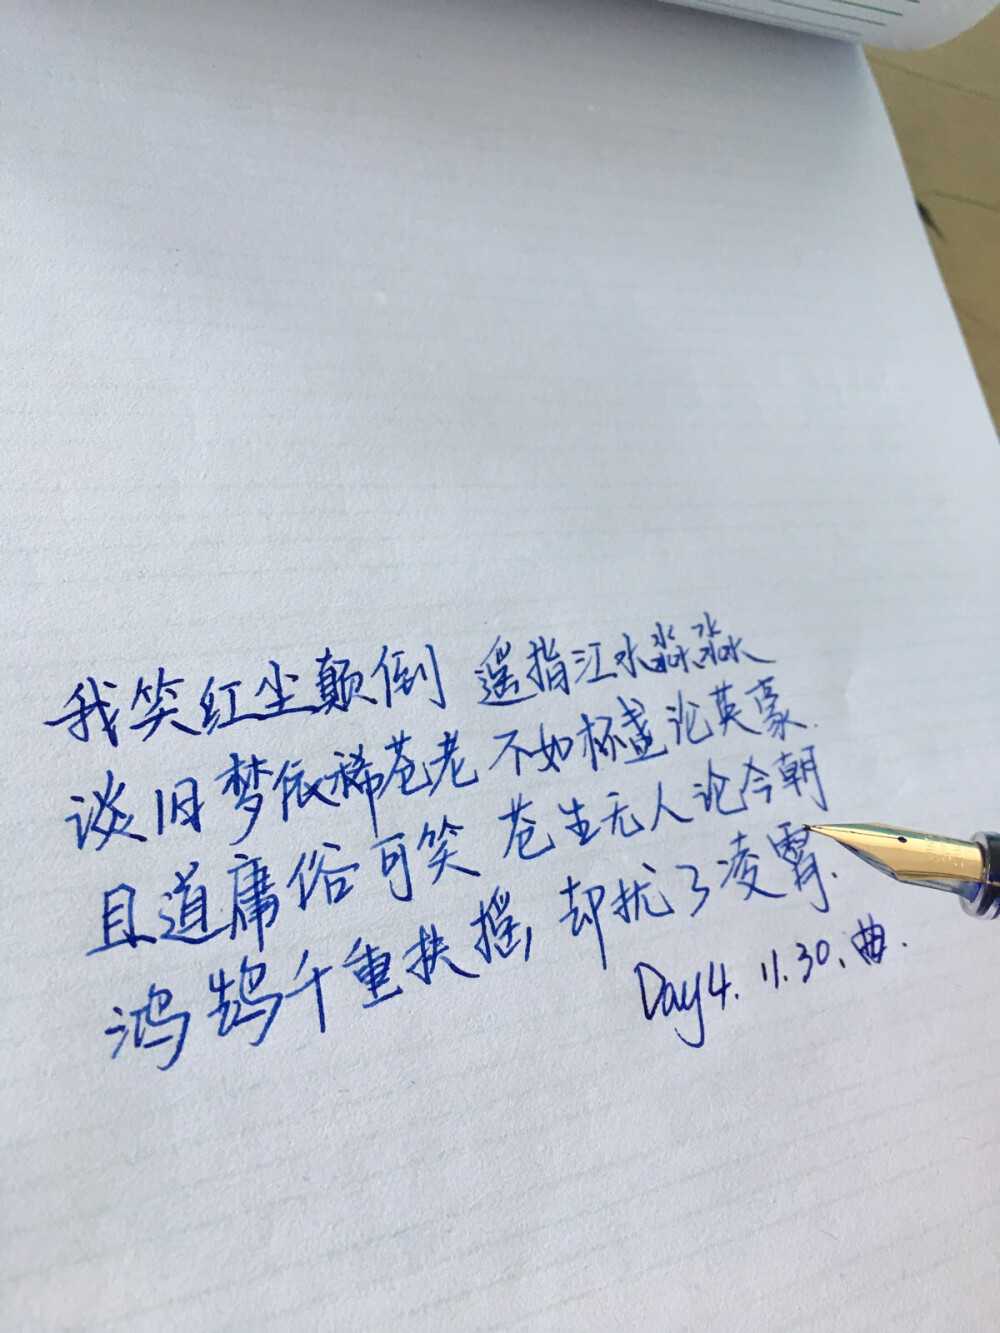 我笑红尘颠倒 遥指江水淼淼
谈旧梦依稀苍老 不如杯盏论英豪.
且道庸俗可笑 苍生无人论今朝
鸿鹄千重扶摇, 却扰了凌霄.
Day4. 11.30、曲.